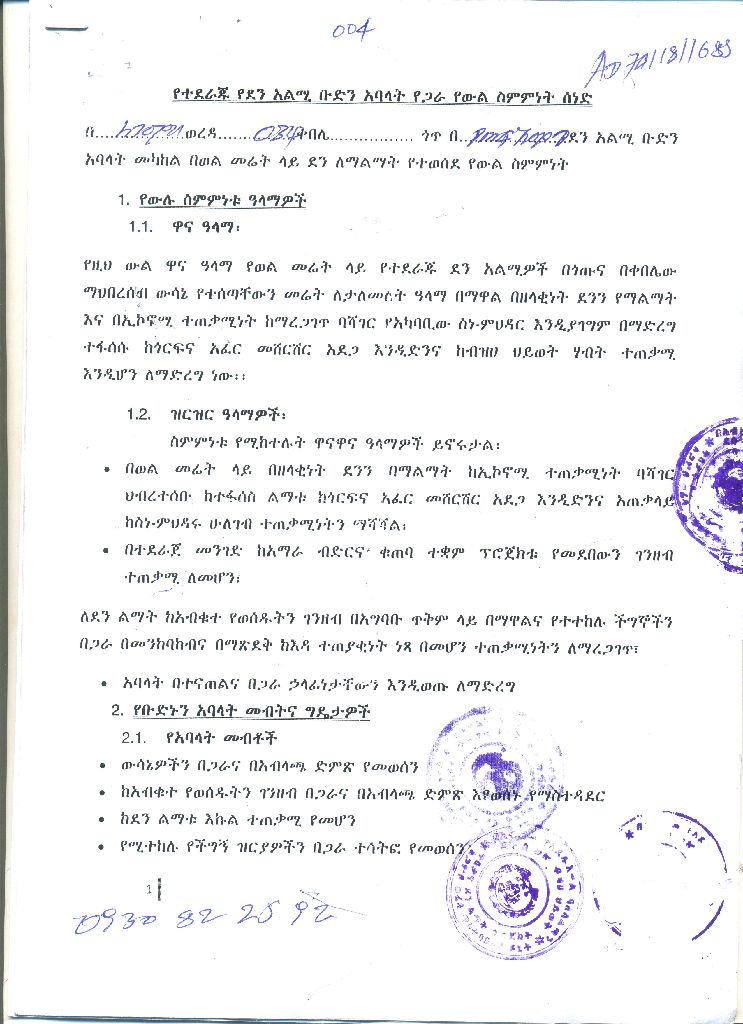 004
የተደራጁ የደን አልሚ ቡድን አባላት የጋራ የውል ስምምነት ሰነድ
በ.... ወረዳ....... ቀበሌ................. ጎጥ በ.. ደን አልሚ ቡድን
አባላት መካከል በወል መሬት ላይ ደን ለማልማት የተወሰደ የውል ስምምነት
1. የውሉ ስምምነቱ ዓላማዎች
1.1. ዋና ዓላማ፡
የዚህ ውል ዋና ዓላማ የወል መሬት ላይ የተደራጁ ደን አልሚዎች በጎጡና በቀበሌው
ማህበረሰብ ውሳኔ የተሰጣቸውን መሬት ለታለመለት ዓላማ በማዋል በዘላቂነት ደንን የማልማት
እና በኢኮኖሚ ተጠቃሚነት ከማረጋገጥ ባሻገር የአካባቢው ስነ-ምህዳር እንዲያገግም በማድረግ
ተፋሰሱ ከጎርፍና አፈር መሸርሸር አደጋ እንዲድንና ከብዝሀ ህይወት ሃብት ተጠቃሚ
እንዲሆን ለማድረግ ነው፡፡
1.2. ዝርዝር ዓላማዎች፡
ስምምነቱ የሚከተሉት ዋናዋና ዓላማዎች ይኖሩታል፡
• በወል መሬት ላይ በዘላቂነት ደንን በማልማት ከኢኮኖሚ ተጠቃሚነት ባሻገር
ህብረተሰቡ ከተፋሰስ ልማቱ ከጎርፍና አፈር መሸርሸር አደጋ እንዲድንና አጠቃላይ
ከስነ-ምህዳሩ ሁለገብ ተጠቃሚነትን ማሻሻል፡
• በተደራጀ መንገድ ከአማራ ብድርና ቁጠባ ተቋም ፕሮጀክቱ የመደበውን ገንዘብ
ተጠቃሚ ለመሆን፡
ለደን ልማት ከአብቁተ የወሰዱትን ገንዘብ በአግባቡ ጥቅም ላይ በማዋልና የተተከሉ ችግኞችን
በጋራ በመንከባከብና በማጽደቅ ከእዳ ተጠያቂነት ነጻ በመሆን ተጠቃሚነትን ለማረጋገጥ፣
• አባላት በተናጠልና በጋራ ኃላፊነታቸውን እንዲወጡ ለማድረግ
2. የቡድኑን አባላት መብትና ግዴታዎች
2.1. የአባላት መብቶች
• ውሳኔዎችን በጋራና በአብላጫ ድምጽ የመወሰን
• ከአብቁተ የወሰዱትን ገንዘብ በጋራና በአብላጫ ድምጽ እየወሰኑ የማስተዳደር
• ከደን ልማቱ እኩል ተጠቃሚ የመሆን
• የሚተከሉ የችግኝ ዝርያዎችን በጋራ ተሳትፎ የመወሰን
1
0930 82 25 92